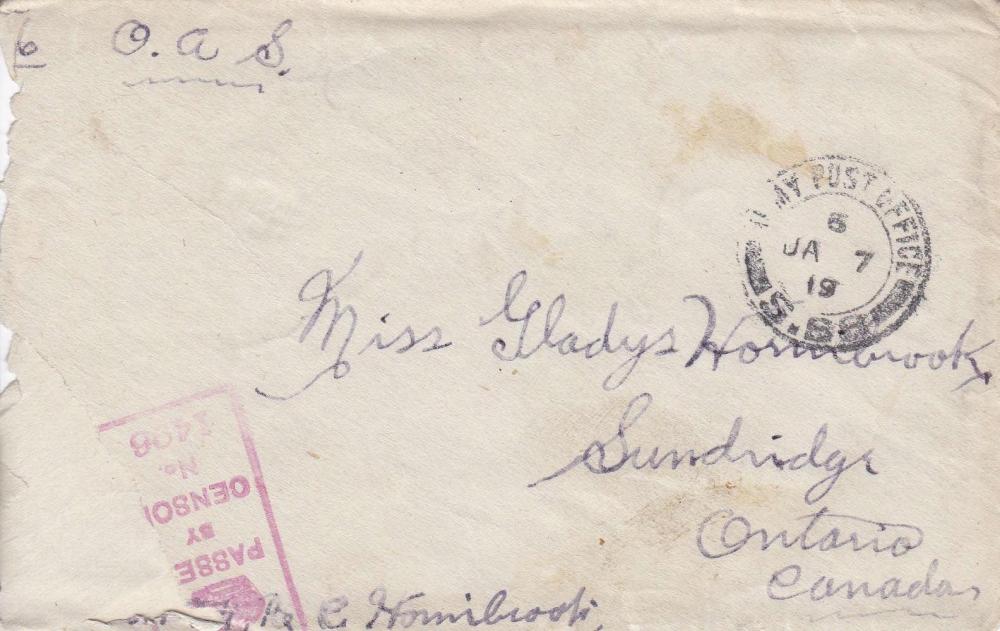 6
O. A. S.
ARMY POST OFFICE
6
JA 7
19
S.
Miss Gladys Hornibrook,
Sundridge
Ontario
Canada,
PASSE
BY
CENSO
No.
1406
C Hornibrook,